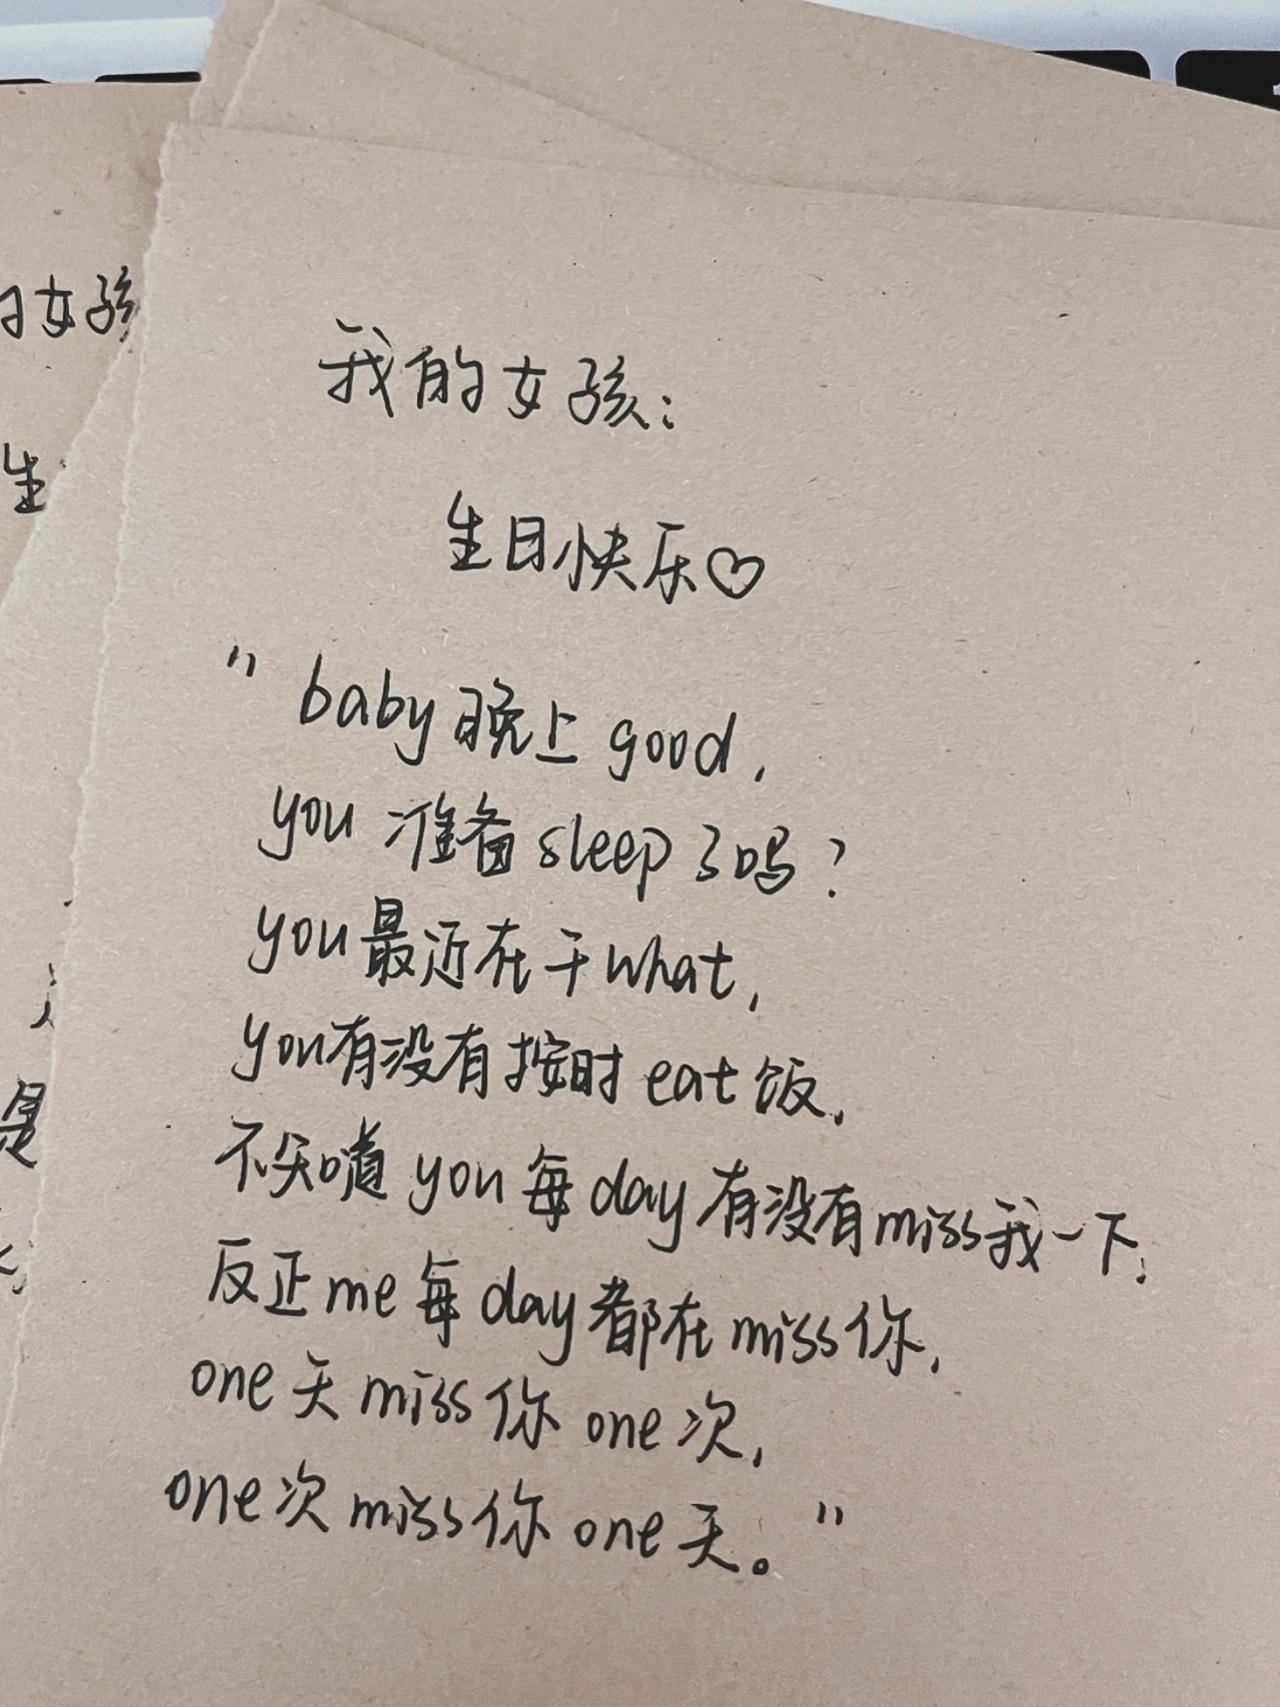 我的女孩：
生日快乐♡
"baby晚上good，
you 准备sleep了吗？
you最近在干what，
you有没有按时eat饭，
不知道you每day有没有miss我一下，
反正me每day都在miss你，
one天miss你one次，
one次miss你one天。"
的女孩
生
是